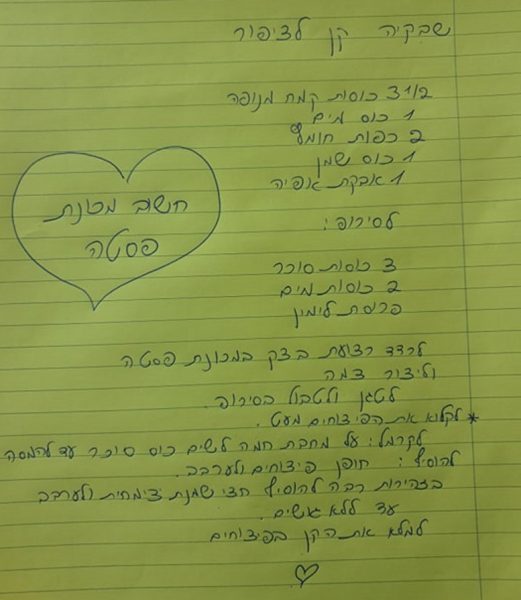 שבקיה קן לציפור
3 1/2 כוסות קמח מנופה
1 כוס מים
2 כפות חומץ
1 כוס שמן
1 אבקת אפיה
חשוב מכונת
פסטה
לסירופ:
3 כוסות סוכר
2 כוסות מים
פרוסת לימון
לרדד רצועת בצק במכונת פסטה
וליצור צמה
לטגן ולטבול בסירופ.
* לקלוא את הפיצוחים מעט.
לקרמל: על מחבת חמה לשים כוס סוכר עד להמסה
להוסיף: חופן פיצוחים ולערבב.
בזהירות רבה להוסיף חצי שמנת צימחית ולערבב
עד ללא גושים.
למלא את הקן בפיצוחים
♡